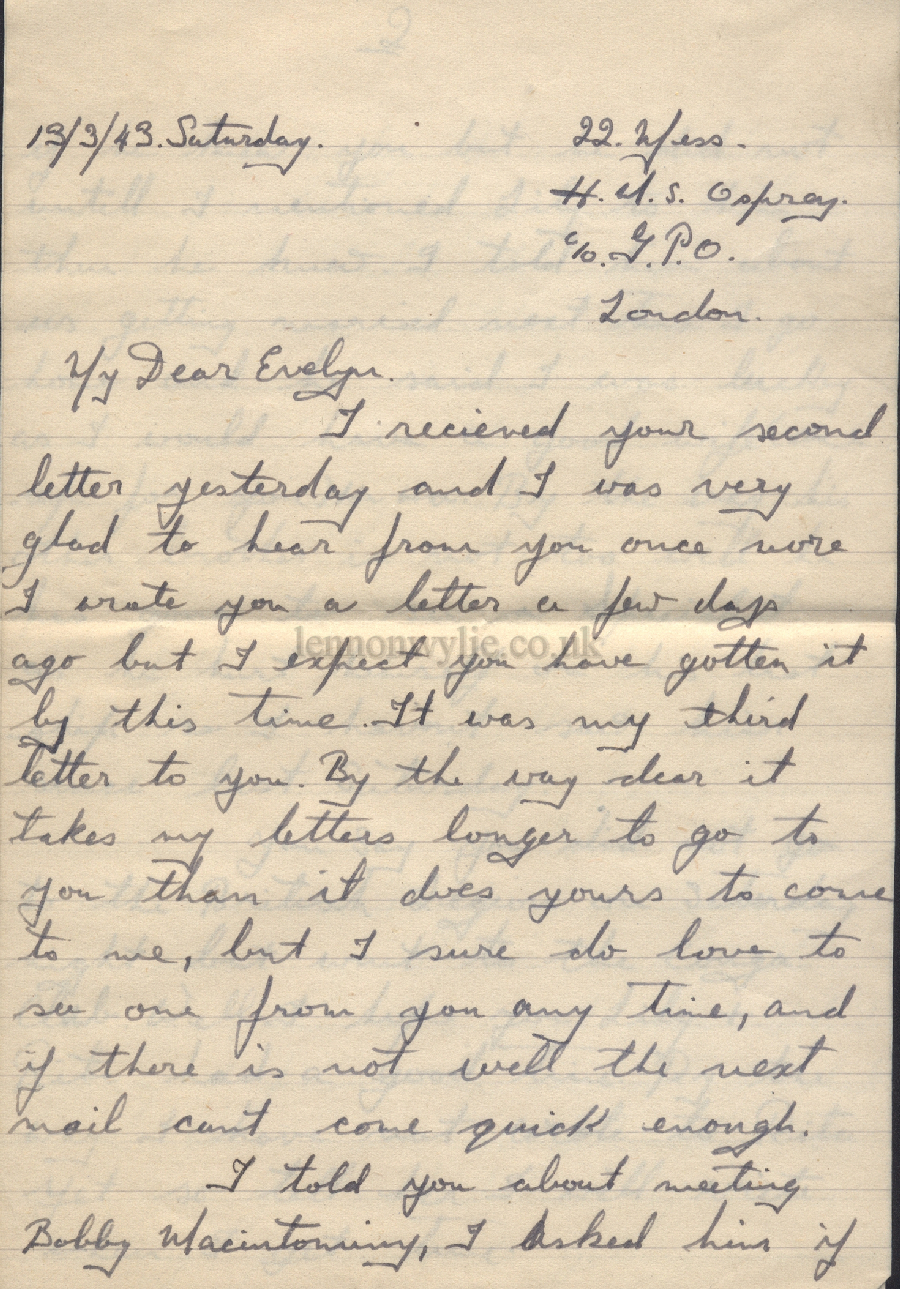 13/3/43. Saturday.
22. Mess.
H.M.S. Osprey.
c/o. G.P.O.
London.
My Dear Evelyn.
I recieved your second
letter yesterday and I was very
glad to hear from you once more
I wrote you a letter a few days
ago but I expect you have gotten it
by this time. It was my third
letter to you. By the way dear it
takes my letters longer to go to
you than it does yours to come
to me, but I sure do love to
see one from you any time, and
if there is not well the next
mail cant come quick enough.
I told you about meeting
Bobby I Asked him if
lennonwylie.co.uk